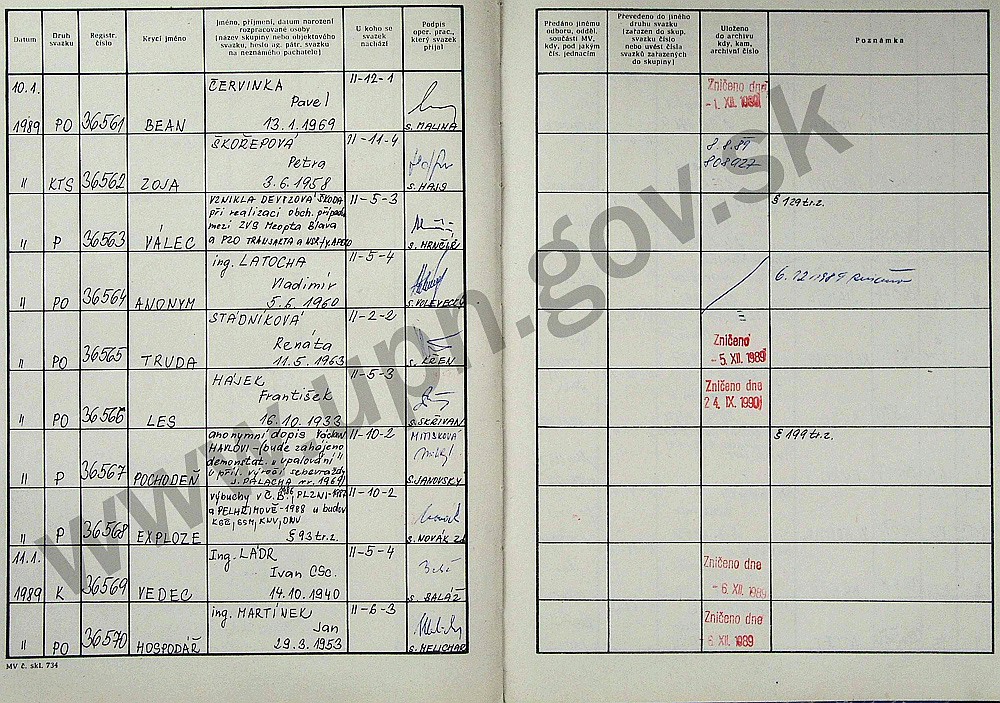 Datum
Druh svazku
Registr. číslo
Krycí jméno
Jméno, příjmení, datum narození
rozpracované osoby
(název skupiny nebo objektového
svazku, heslo ag. pátr. svazku
na neznámého pachatele)
U koho se
svazek
nachází
Podpis
oper. prac.,
který svazek
přijal
Předáno jinému
odboru, odděl.
součásti MV,
kdy, pod jakým
čís. jednacím
Převedeno do jiného
druhu svazku
(zařazen do skup.
svazku číslo
nebo uvést čísla
svazků zařazených
do skupiny)
Uloženo
do archivu
kdy, kam,
archivní číslo
Poznámka
10.1.
1989 PO 36561 BEAN
ČERVINKA
Pavel
13.1.1969
II-12-1
s. MALINA
Zničeno dne
- 1. XII. 1989
" KTS 36562 ZOJA
ŠKOŘEPOVÁ
Petra
3.6.1958
II-11-4
s. HAJS
8.8.89
808927
" P 36563 VÁLEC
VZNIKLA DEVIZOVÁ ŠKODA
při realizaci obch. případu
mezi ZVS Meopta Bľava
a PZO TRANSAKTA a
II-5-3
§ 129 tr.z.
" PO 36564 ANONYM
ing. LATOCHA
Vladimír
5.6.1960
II-5-4
6.12.1989
" PO 36565 TRUDA
STADNÍKOVÁ
Renáta
11.5.1963
II-2-2
s. KŘEN
Zničeno
- 5. XII. 1989
" PO 36566 LES
HÁJEK
František
16.10.1933
II-5-3
s. SKŘIVAN
Zničeno dne
24. IX. 1990
" P 36567 POCHODEŇ
anonymní dopis Václavu
HAVLOVI - (bude zahájeno
demonstat. "upalování"
u příl. výročí sebevraždy
J. PALACHA nr. 1969)
II-10-2
MITISKOVÁ
s. JANOVSKÝ
§ 199 tr.z.
" P 36568 EXPLOZE
výbuchy v Č.B. 1986, PLZNI-1987
a PELHŘIMOVĚ-1988 u budov
KSČ, SSM, KNV, ONV
§ 93 tr.z.
II-10-2
s. NOVÁK
11.1.
1989 K 36569 VEDEC
Ing. LÁDR
Ivan CSc.
14.10.1940
II-5-4
s. BALÁŽ
Zničeno dne
- 6. XII. 1989
" PO 36570 HOSPODÁŘ
ing. MARTÍNEK
Jan
29.3.1953
II-6-3
s. MELICHAR
Zničeno dne
- 6. XII. 1989
MV č. skl. 734
www.upn.gov.sk